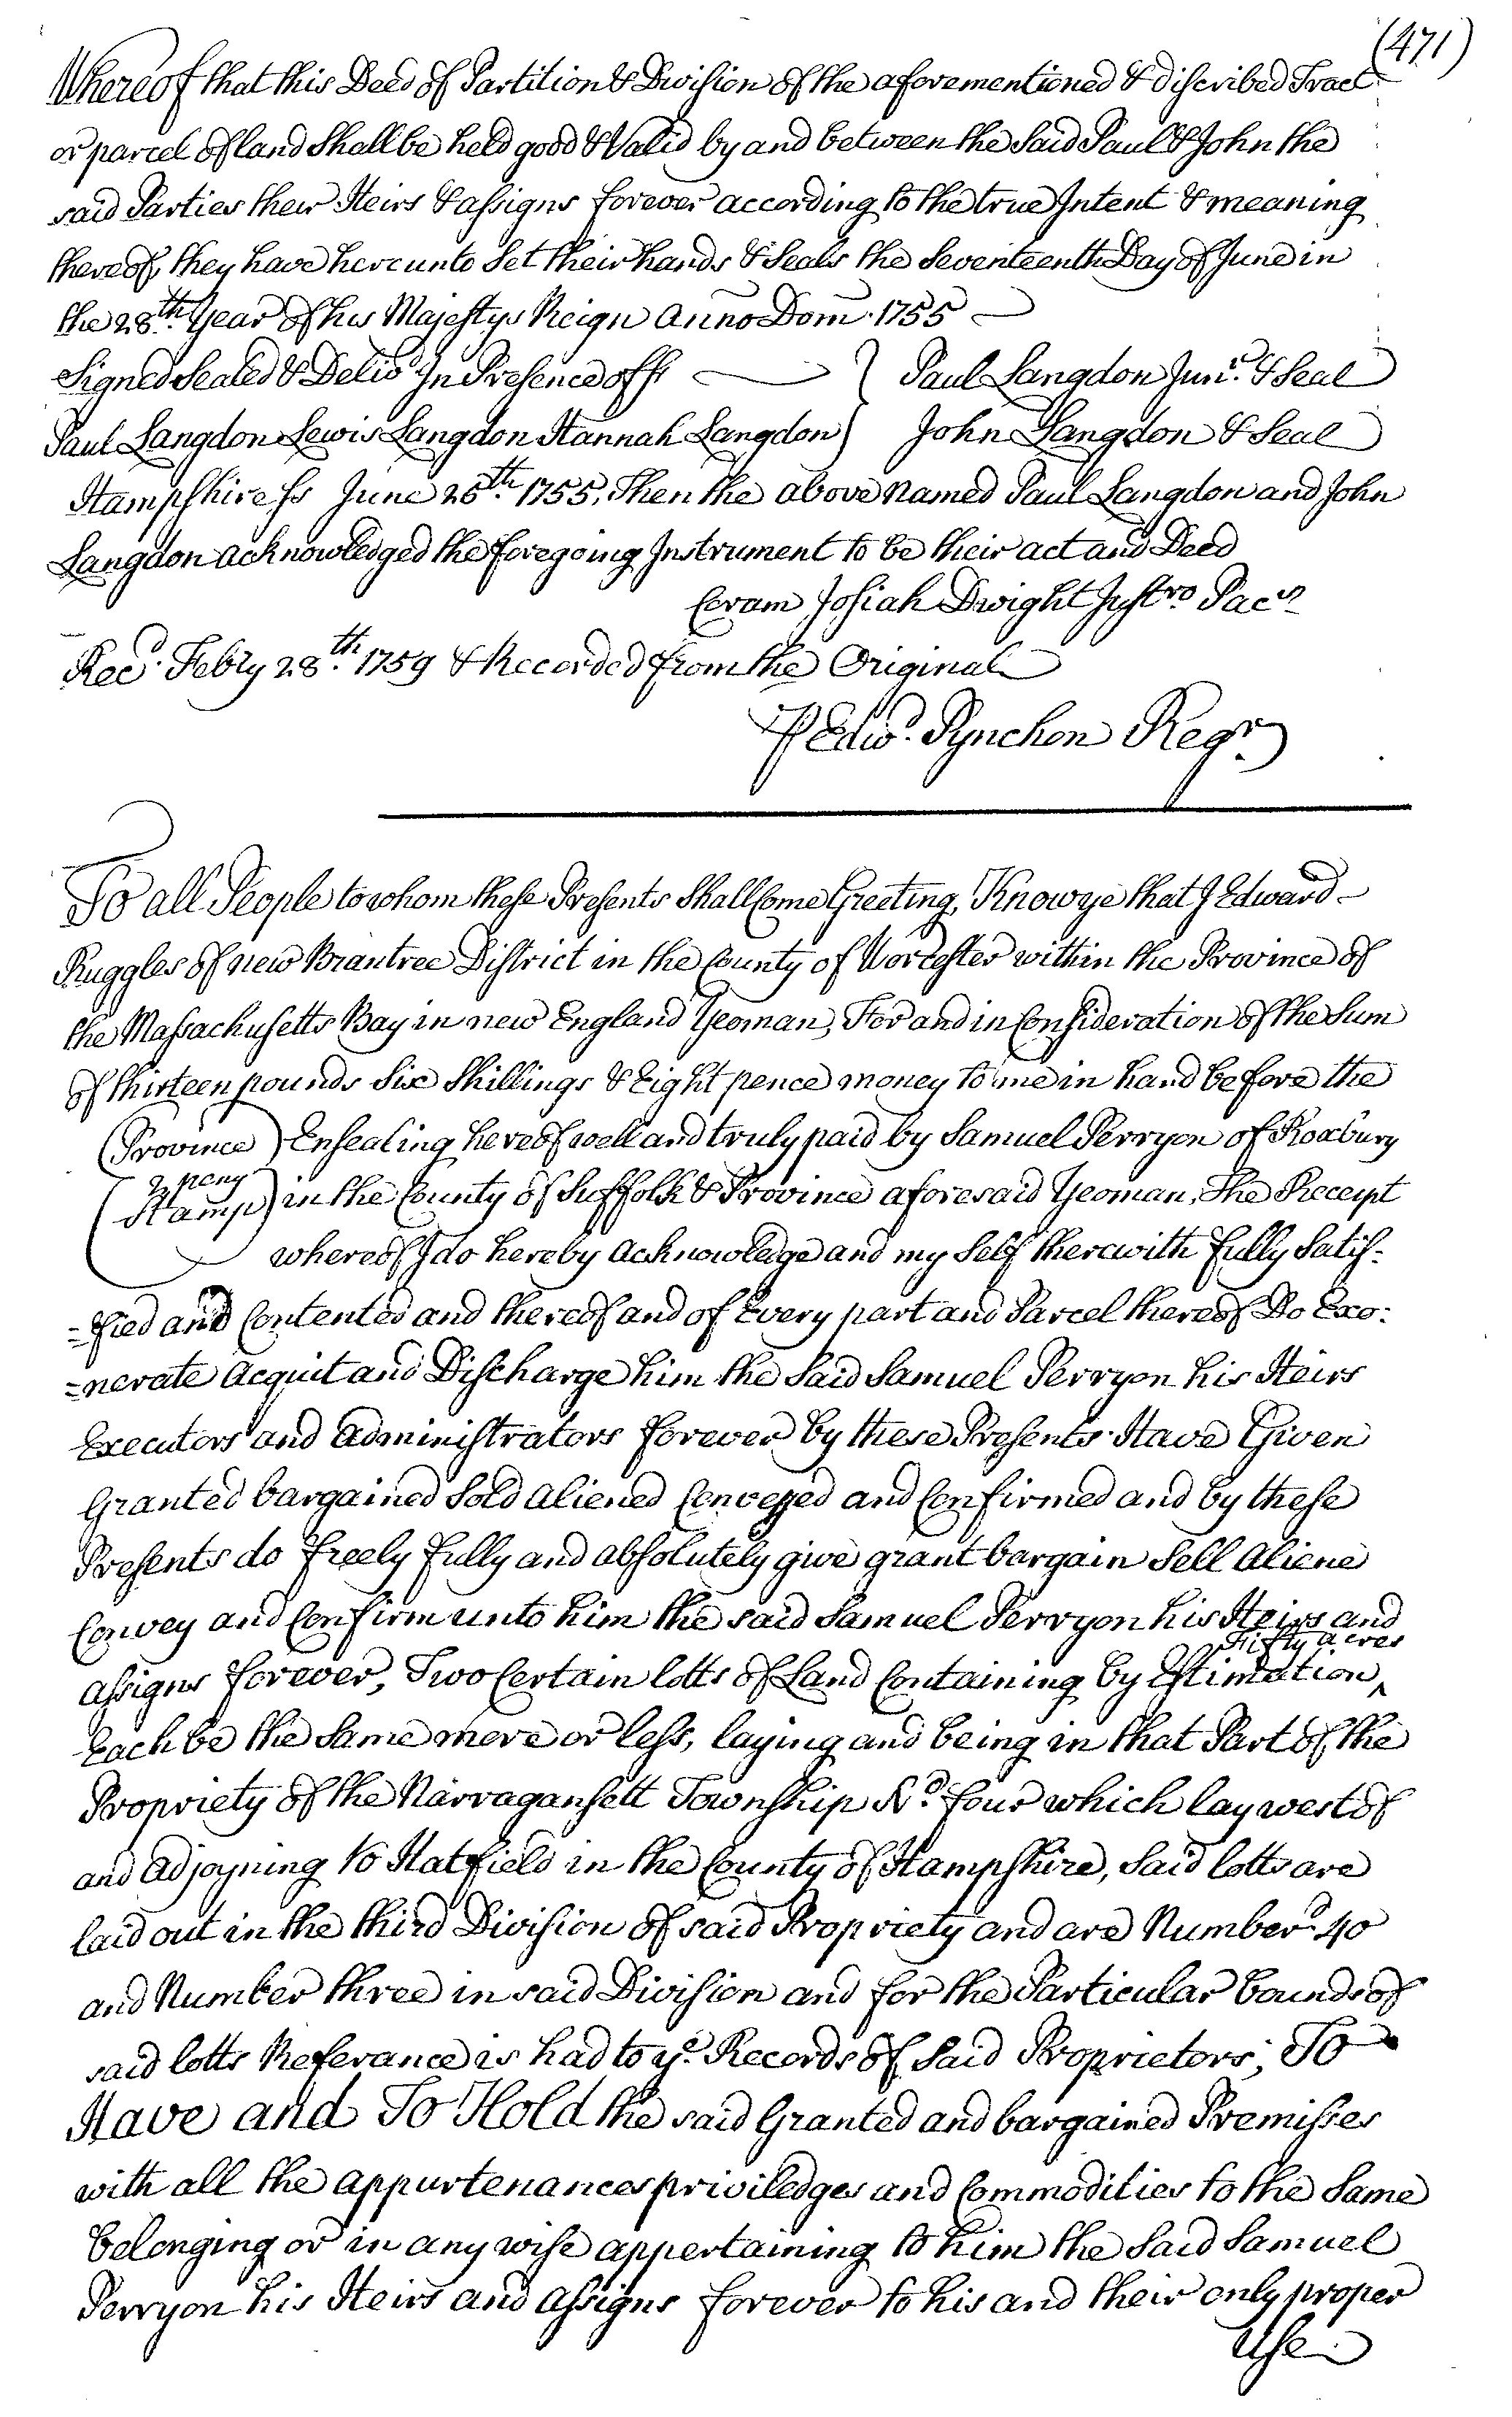 (471)
Whereof that this Deed of Partition & Division of the aforementioned & discribed Tract
or parcel of land Shall be held good & Valid by and between the said Paul & John the
said Parties their Heirs & assigns forever according to the true Intent & meaning
thereof, they have hereunto Set their hands & Seals the Seventeenth Day of June in
the 28th Year of his Majestys Reign Anno Dom. 1755
Signed Sealed & Delivd In Presence off } Paul Langdon Junr. & Seal
Paul Langdon Lewis Langdon Hannah Langdon } John Langdon & Seal
Hampshire ss June 26th. 1755, Then the above Named Paul Langdon and John
Langdon acknowledged the foregoing Instrument to be their act and Deed
Coram Josiah Dwight Justro Pacs
Recd. Febry 28th. 1759 & Recorded from the Original
P Edwd. Pynchon Regr.
To all People to whom these Presents Shall Come Greeting, Know ye that I Edward
Ruggles of new Brantree District in the County of Worcester within the Province of
the Massachusetts Bay in new England Yeoman, For and in Consideration of the Sum
of thirteen pounds Six Shillings & Eight pence money to me in hand before the
(Province) Ensealing hereof well and truly paid by Samuel Perryon of Roxbury
(2 peny
Stamp) in the County of Suffolk & Province aforesaid Yeoman, The Receipt
whereof I do hereby acknowledge and my Self therewith fully Satis-
=fied and Contented and thereof and of Every part and Parcel thereof Do Exo:
=nerate acquit and Discharge him the Said Samuel Perryon his Heirs
Executors and administrators forever by these Presents. Have Given
Granted bargained Sold aliened Conveyed and Confirmed and by these
Presents do freely fully and absolutely give grant bargain Sell aliene
Convey and Confirm unto him the said Samuel Perryon his Heirs and
Fifty acres
assigns forever, Two Certain lotts of Land Containing by Estimation ^
Each be the Same more or less, laying and being in that Part of the
Propriety of the Narragansett Township No. four which lay west of
and adjoyning to Hatfield in the County of Hampshire, Said lotts are
laid out in the third Division of said Propriety and are Numberd. 40
and Number three in said Division and for the Particular bounds of
said lotts Referance is had to ye. Records of Said Proprietors; To
Have and To Hold the said Granted and bargained Premisses
with all the appurtenances priviledges and Commodities to the Same
belonging or in any wise appertaining to him the Said Samuel
Perryon his Heirs and assigns forever to his and their only proper
Use